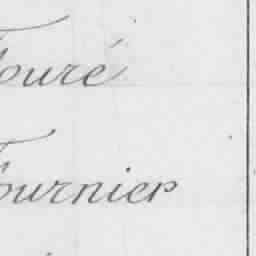 Fouré
Fournier